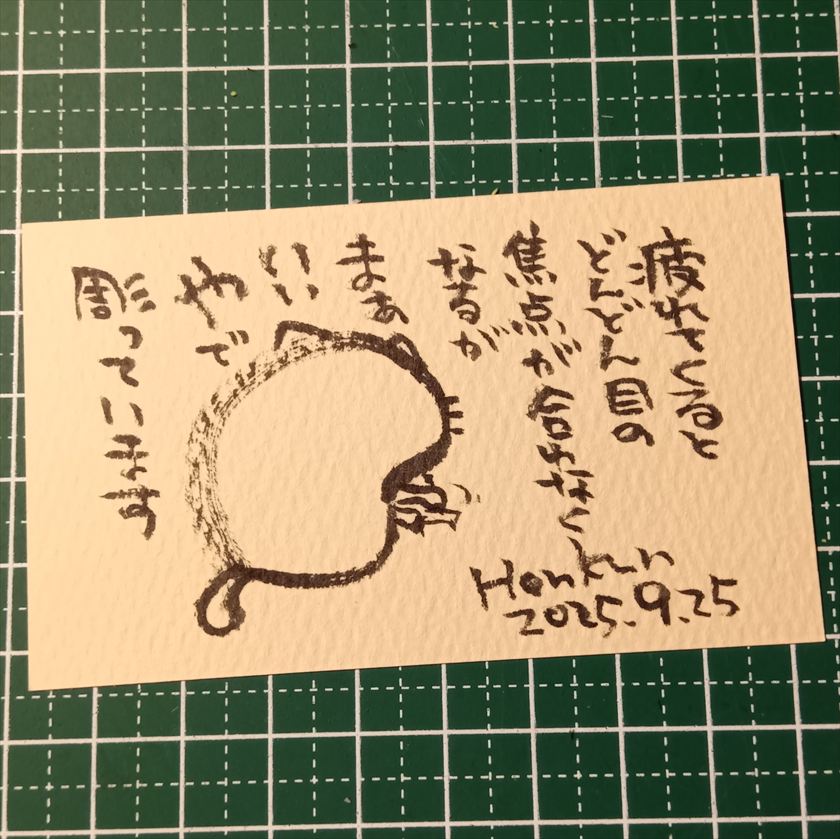 疲れてくると
どんどん目の
焦点が合わなく
なるが
まぁ
いい
やで
彫っていきます
Honkun
2025.9.25